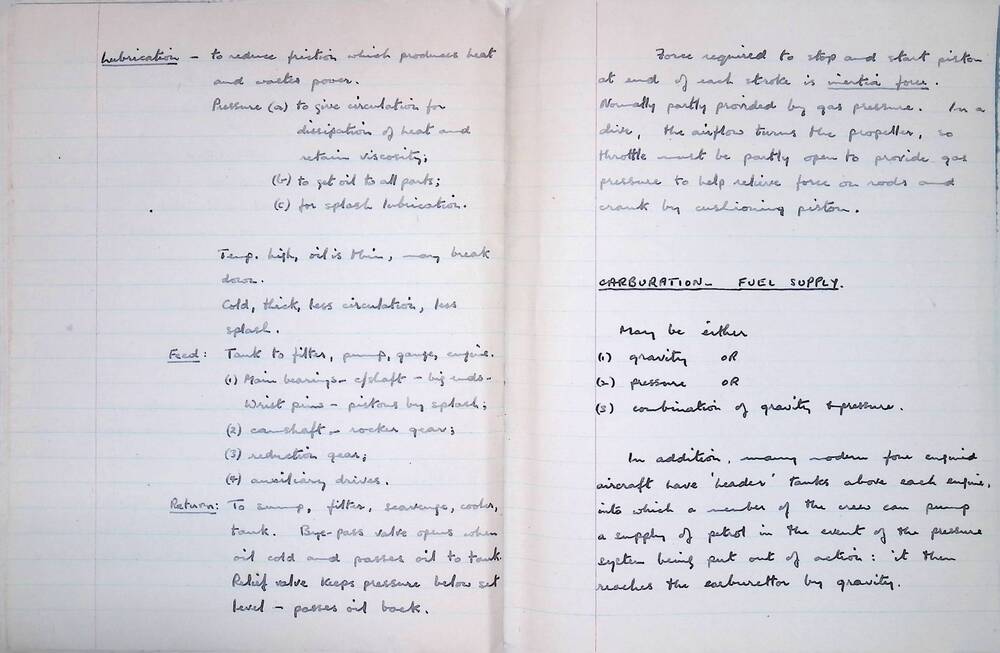 Lubrication - to reduce friction which produces heat
and wastes power.
Pressure (a) to give circulation for
dissipation of heat and
retain viscosity;
(b) to get oil to all parts;
(c) for splash lubrication.
Temp. high, oil is thin, may break
down.
Cold, thick, less circulation, less
splash.
Feed: Tank to filter, pump, gauge, engine.
(1) Main bearings - c/shaft - big ends -
Wrist pins - pistons by splash;
(2) camshaft - rocker gear;
(3) reduction gear;
(4) auxiliary drives.
Return: To sump, filter, scavenge, cooler,
tank. Bye-pass valve opens when
oil cold and passes oil to tank.
Relief valve keeps pressure below set
level - passes oil back.
Force required to stop and start piston
at end of each stroke is inertia force.
Normally partly provided by gas pressure. In a
dive, the airflow turns the propeller, so
throttle must be partly open to provide gas
pressure to help relieve force on rods and
crank by cushioning piston.
CARBURATION - FUEL SUPPLY.
May be either
(1) gravity OR
(2) pressure OR
(3) combination of gravity & pressure.
In addition, many modern four engined
aircraft have 'header' tanks above each engine,
into which a member of the crew can pump
a supply of petrol in the event of the pressure
system being put out of action: it then
reaches the carburettor by gravity.